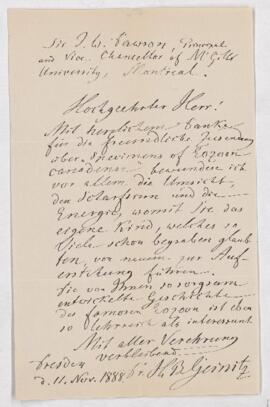 Sir J. W. Dawson, Principal
and Vice-Chancellor of McGill
University, Montreal.
Hochgeehrter Herr!
Mit herzlichem Danke
für die freundliche Zusendung
über „Specimens of Eozoon
canadense“ bewundere ich
vor allem die Umsicht,
den Scharfsinn und die
Energie, womit Sie das
eigene Kind, welches so
Viele schon begraben glaub-
ten, von neuem zur Auf-
erstehung führen.
Die von Ihnen so sorgsam
entwickelte Geschichte
des famosen Eozoon ist eben
so lehrreich als interessant.
Mit aller Verehrung
verbleibend
Dresden
d. 11. Nov. 1888. Dr. H. B. Geinitz